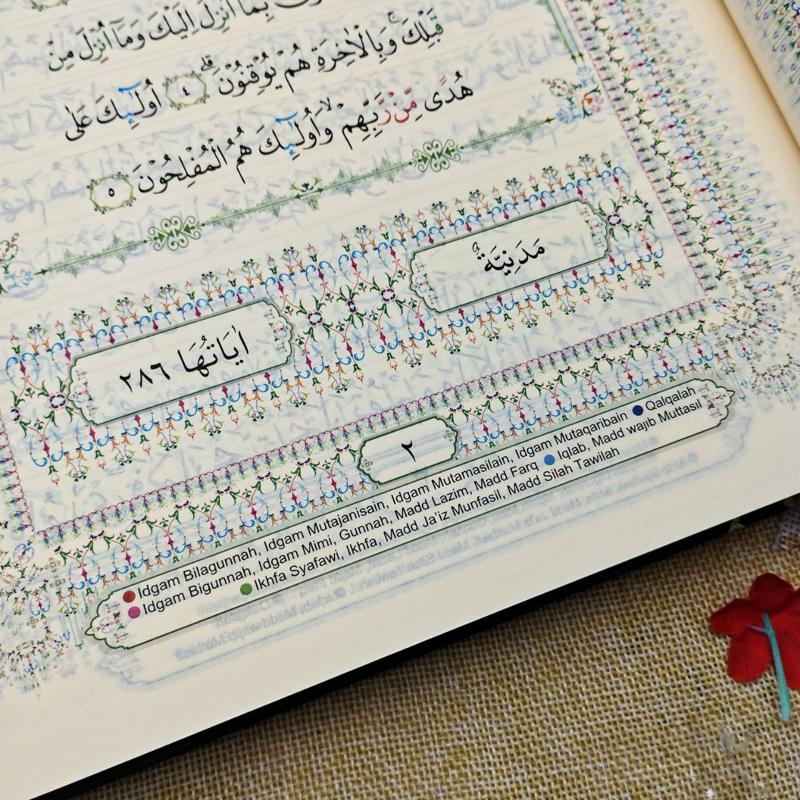 بِمَآ اُنْزِلَ اِلَيْكَ وَمَآ اُنْزِلَ مِنْ
قَبْلِكَ ۚ وَبِالْاٰخِرَةِ هُمْ يُوْقِنُوْنَ ۗ ٤ اُولٰۤىِٕكَ عَلٰى
هُدًى مِّنْ رَّبِّهِمْ ۙ وَاُولٰۤىِٕكَ هُمُ الْمُفْلِحُوْنَ ٥
مَدَنِيَّةٌ
اٰيَاتُهَا ٢٨٦
٢
Idgam Bilagunnah, Idgam Mutajanisain, Idgam Mutamasilain, Idgam Mutaqaribain Qalqalah
Idgam Bigunnah, Idgam Mimi, Gunnah, Madd Lazim, Madd Farq Iqlab, Madd wajib Muttasil
Ikhfa Syafawi, Ikhfa, Madd Ja'iz Munfasil, Madd Silah Tawilah